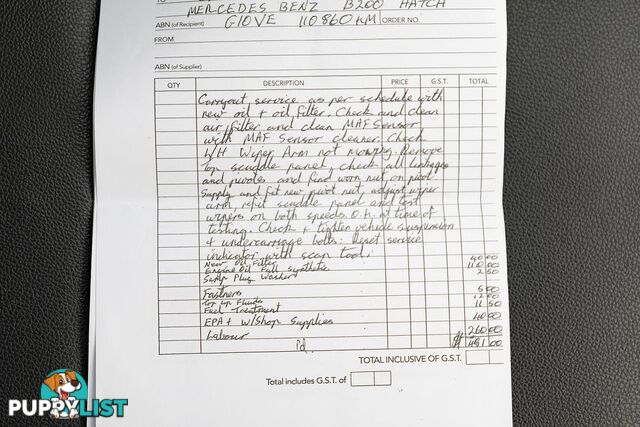 MERCEDES BENZ B200 HATCH
ABN (of Recipient) GIOVE 110860KM ORDER NO.
FROM
ABN (of Supplier)
QTY DESCRIPTION PRICE G.S.T. TOTAL
Carryout service as per schedule with
new oil + oil filter. Check and clean
air filter and clean MAF Sensor
with MAF Sensor cleaner. Check
L/H Wiper Arm not moving. Remove
Top scuddle panel, check all linkages
and pivots and find worn nut on pivot.
Supply and fit new pivot nut, adjust wiper
arm refit scuddle panel and test
wipers on both speeds O.K. at time of
testing. Check + tighten vehicle suspension
+ undercarriage bolts. Reset service
indicator with scan tool.
New Oil Filter 40 00
Engine Oil Full Synthetic 110 00
Sump Plug Washer 2 50
Fastners 5 00
Top up Fluids 12 00
Fuel Treatment 11 50
EPA + W/Shop Supplies 40 00
Labour 260 00
Pd. $ 481 00
TOTAL INCLUSIVE OF G.S.T.
Total includes G.S.T. of
PUPPYLIST